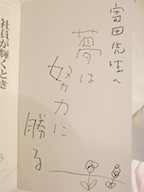 富田先生へ
夢は
努力に
勝る
社員が輝くとき